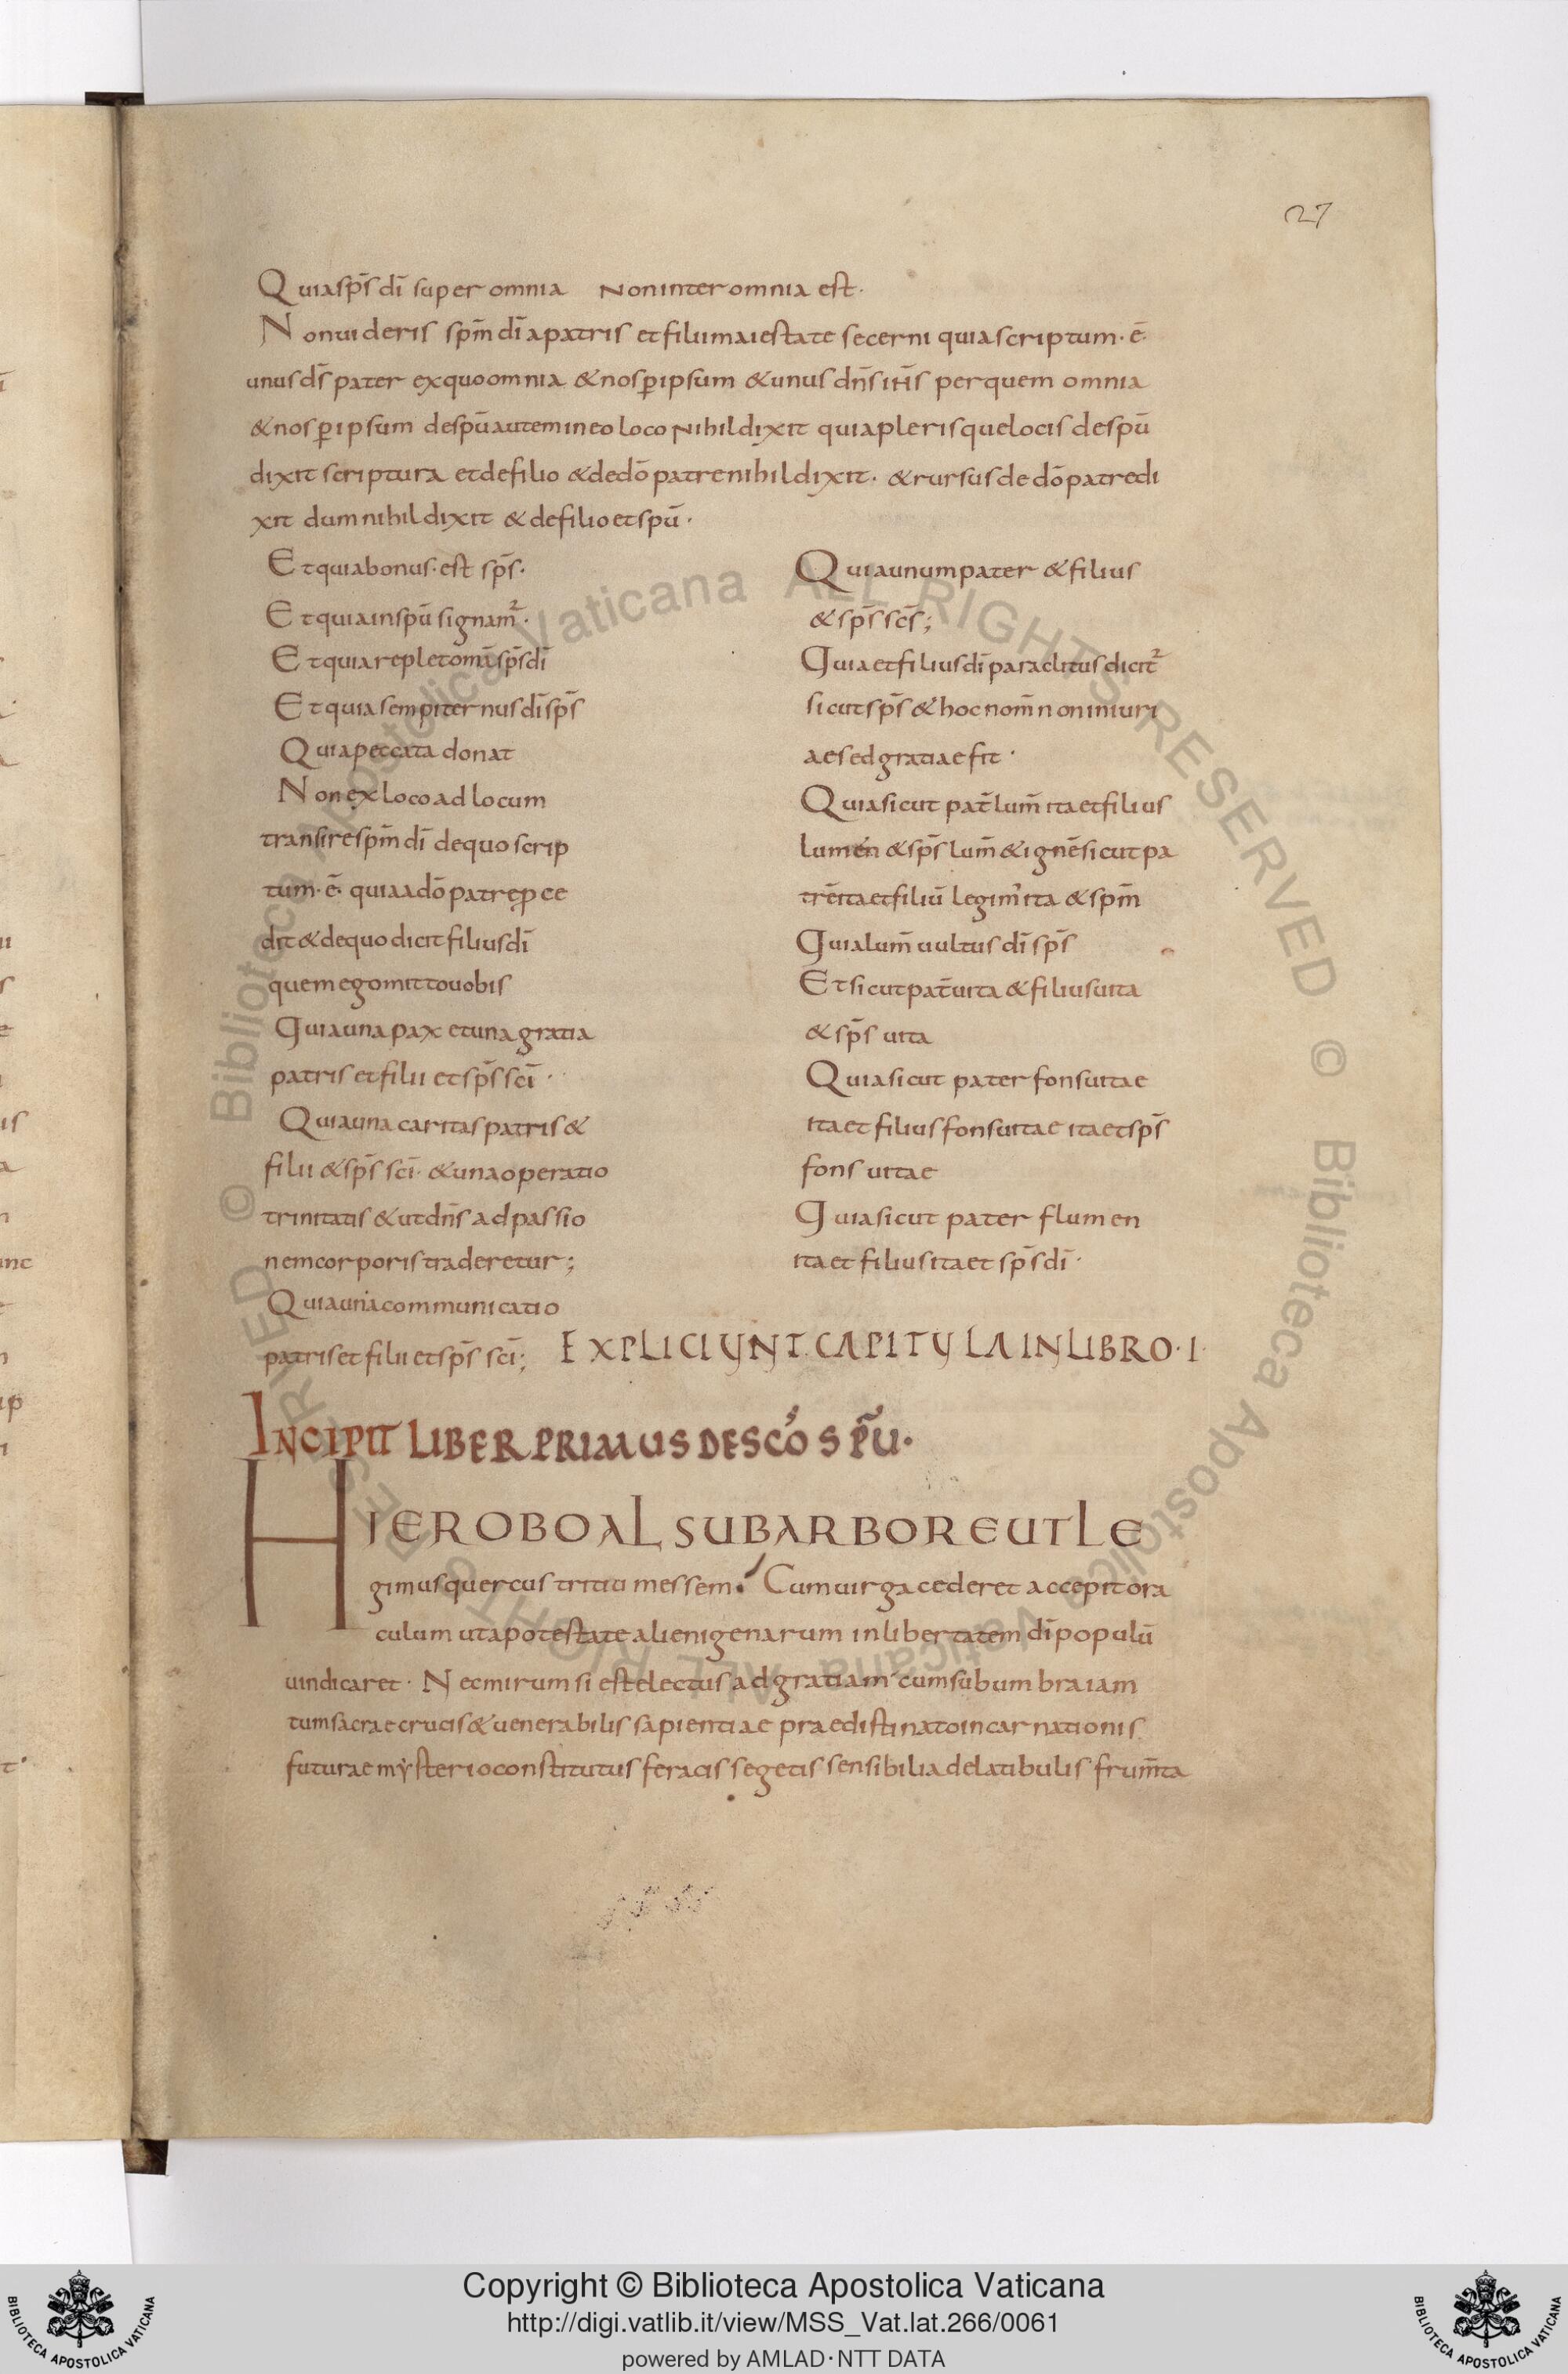 27
Quia sp̄s dī super omnia non inter omnia est·
Non uideris sp̄m dī a patris et filii maiestate secerni quia scriptum· ē·
unus d̄s pater ex quo omnia & nos p̱ ipsum & unus dn̄s ih̄s per quem omnia
& nos p̱ ipsum de spū autem in eo loco nihil dixit quia plerisque locis de spū
dixit scriptura et de filio & de dō patre nihil dixit· & rursus de dō patre di
xit dum nihil dixit & de filio et spū·
Et quia bonus· est sp̄s·
Et quia in spū signam̄·
Et quia replet om̄ia sp̄s dī
Et quia sempiternus dī sp̄s
Quia peccata donat
Non ex loco ad locum
transire sp̄m dī de quo scrip
tum· ē· quia a dō patre p̱ce
dit & de quo dicit filius dī
quem ego mitto uobis
Quia una pax et una gratia
patris et filii et sp̄s scī·
Quia una caritas patris &
filii & sp̄s scī· & una operatio
trinitatis & ut dn̄s ad passio
nem corporis traderetur;
Quia una communicatio
patris et filii et sp̄s scī;
Quia unum pater & filius
& sp̄s sc̄s;
Quia et filius dī paraclitus dicit̄
sicut sp̄s & hoc nom̄ non iniuri
ae sed gratiae fit·
Quia sicut pat̄ lum̄ ita et filius
lumen & sp̄s lum̄ & ignē sicut pa
trē ita et filiū legim' ita & sp̄m
Quia lum̄ uultus dī sp̄s
Et sicut pat̄ uita & filius uita
& sp̄s uita
Quia sicut pater fons uitae
ita et filius fons uitae ita et sp̄s
fons uitae
Quia sicut pater flumen
ita et filius ita et sp̄s dī·
EXPLICIUNT CAPITULA IN LIBRO· I·
INCIPIT LIBER PRIMUS DE SCŌ SPŪ·
HIEROBOAL SUB ARBORE UT LE
gimus quercus tritici messem· Cum uirga cederet accepit ora
culum ut a potestate alienigenarum in libertatem dī populū
uindicaret· Nec mirum si est electus ad gratiam cum sub umbra iam
tum sacrae crucis & uenerabilis sapientiae praedistinato incarnationis
futurae mysterio constitutus feracis segetis sensibilia de latibulis frum̄ta
Copyright © Biblioteca Apostolica Vaticana
http://digi.vatlib.it/view/MSS_Vat.lat.266/0061
powered by AMLAD·NTT DATA